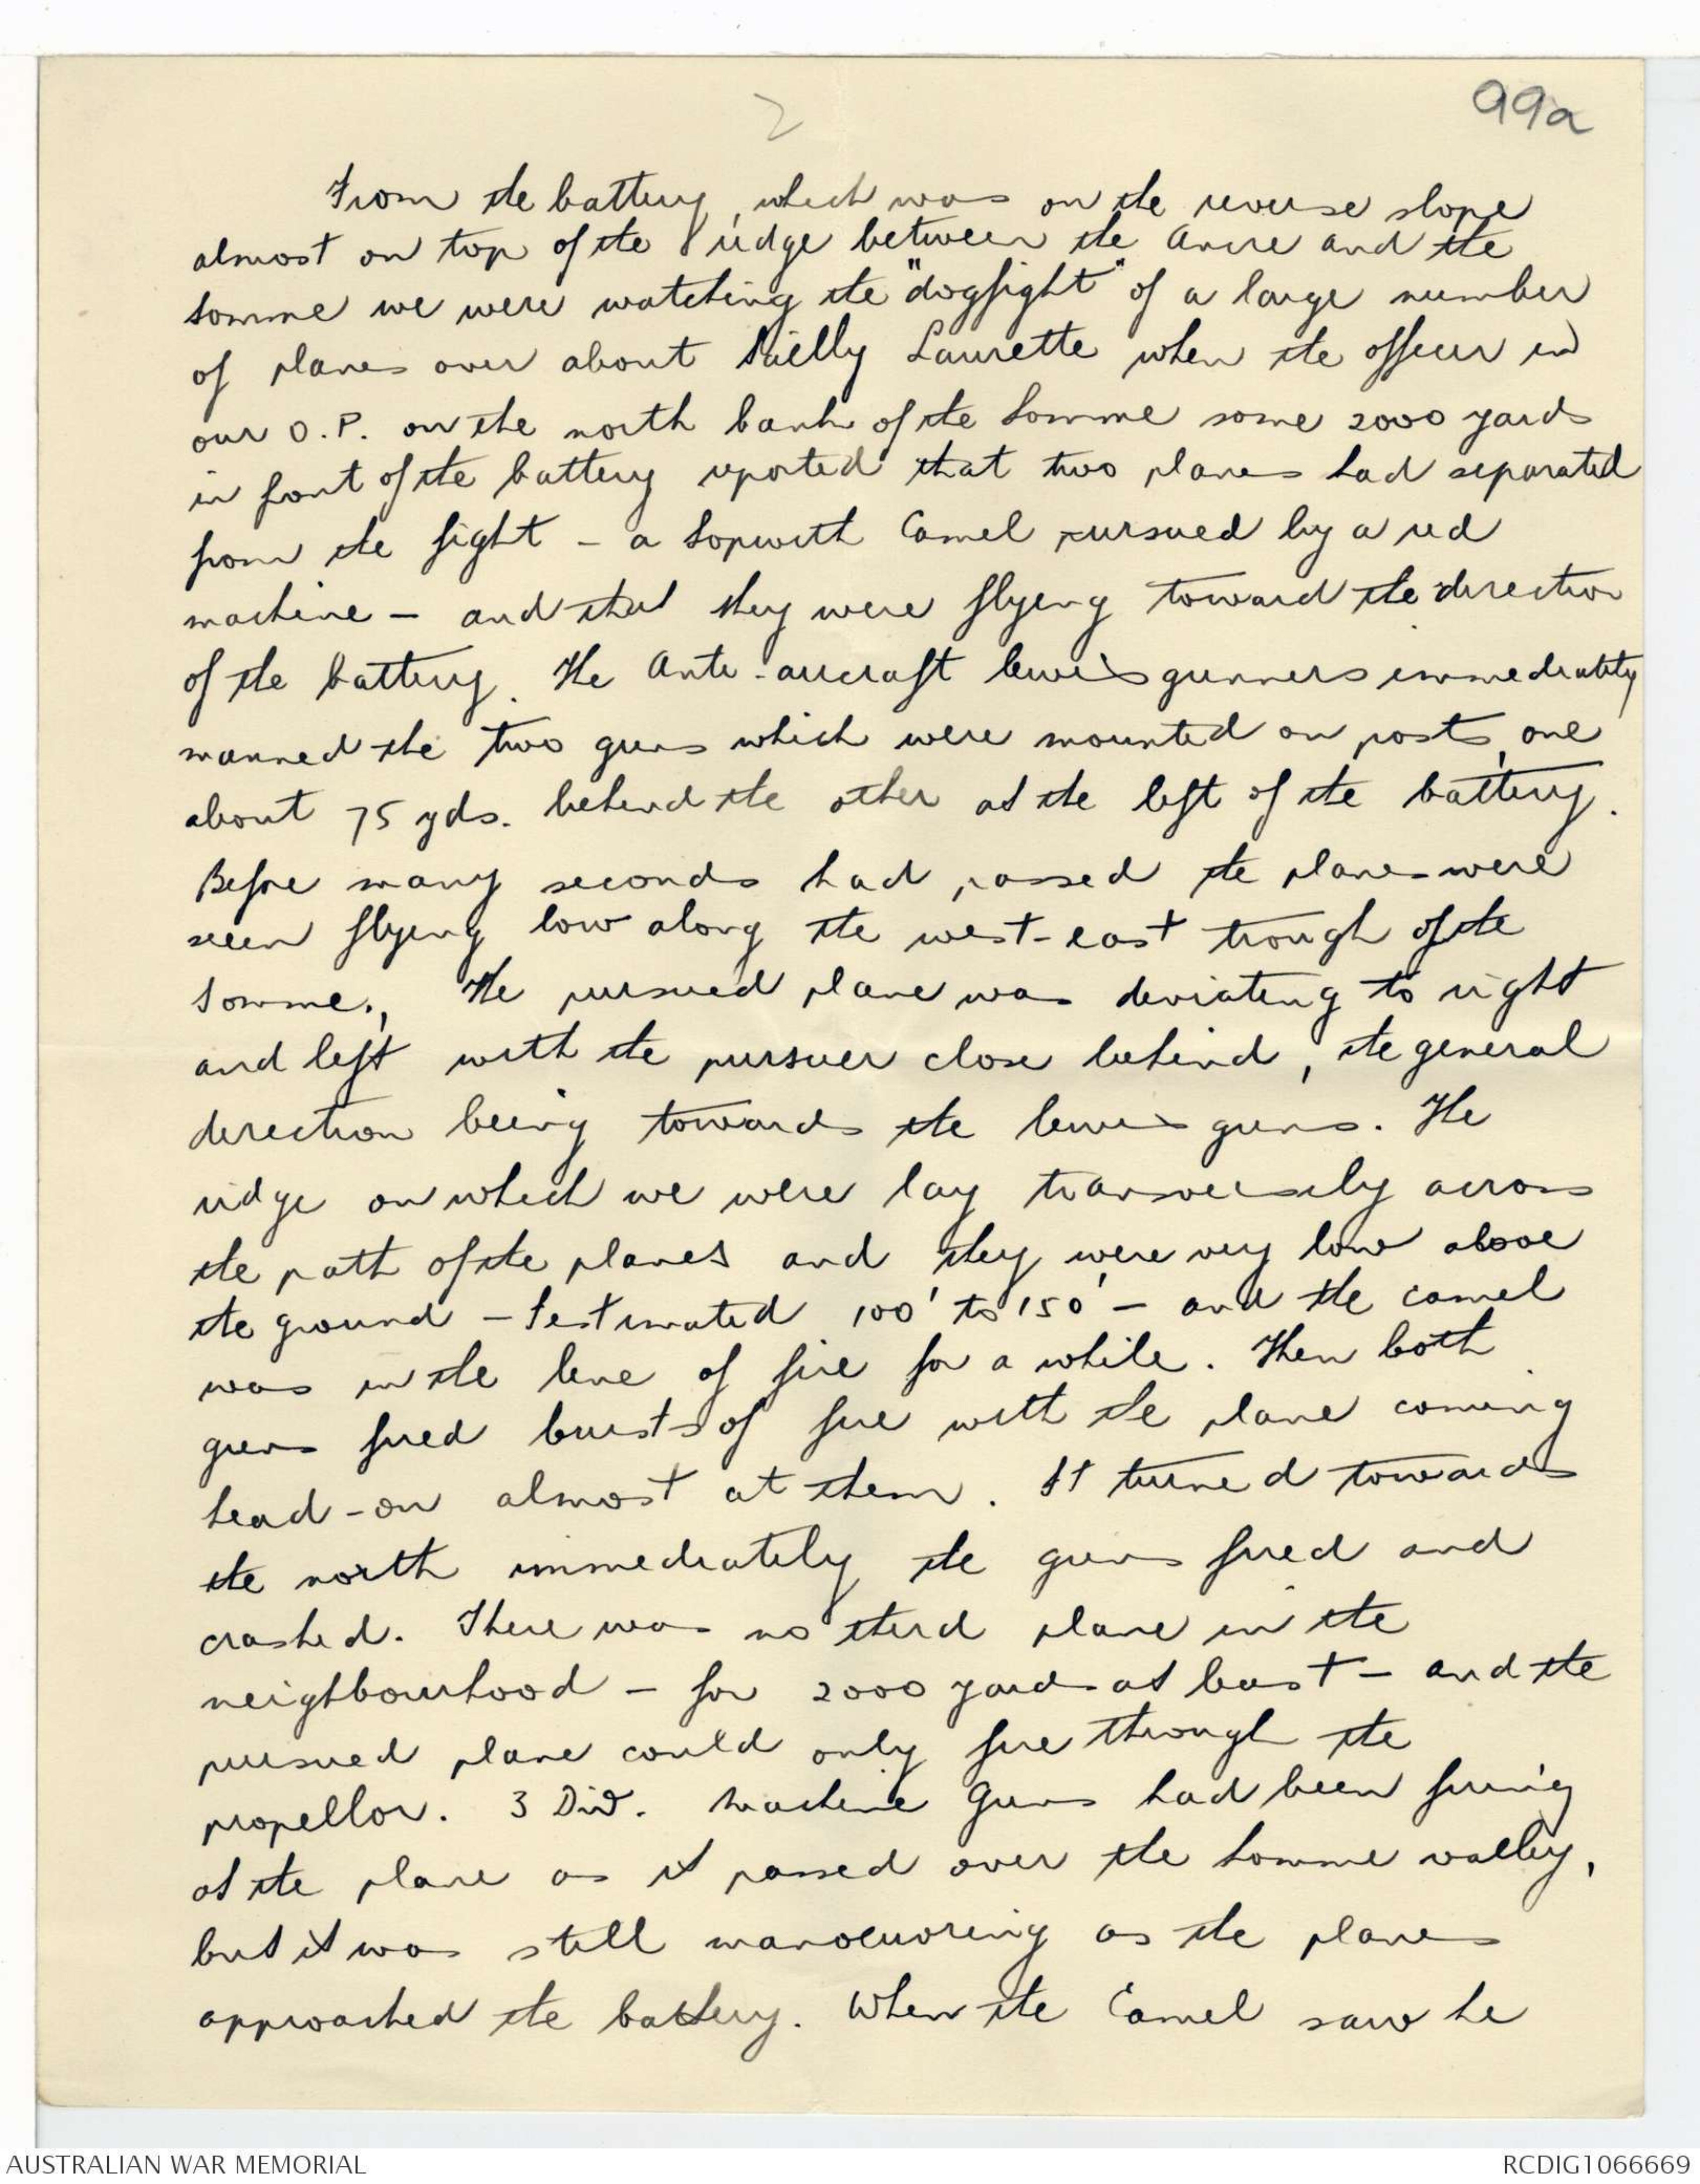 2
99a
From the battery, which was on the reverse slope
almost on top of the ridge between the Ancre and the
Somme we were watching the "dogfight" of a large number
of planes over about Sailly Laurette when the officer in
our O.P. on the north bank of the Somme some 2000 yards
in front of the battery reported that two planes had separated
from the fight - a Sopwith Camel pursued by a red
machine - and that they were flying toward the direction
of the battery. The Anti-aircraft lewis gunners immediately
manned the two guns which were mounted on posts, one
about 75 yds. behind the other at the left of the battery.
Before many seconds had passed the planes were
seen flying low along the west-east trough of the
Somme., The pursued plane was deviating to right
and left with the pursuer close behind, the general
direction being towards the lewis guns. The
ridge on which we were lay transversely across
the path of the planes and they were very low above
the ground - I estimated 100' to 150' - and the camel
was in the line of fire for a while. Then both
guns fired bursts of fire with the plane coming
head-on almost at them. It turned towards
the north immediately the guns fired and
crashed. There was no third plane in the
neighbourhood - for 2000 yards at least - and the
pursued plane could only fire through the
propellor. 3 Div. Machine Guns had been firing
at the plane as it passed over the Somme valley,
but it was still manoeuvring as the planes
approached the battery. When the Camel saw he
AUSTRALIAN WAR MEMORIAL
RCDIG1066669